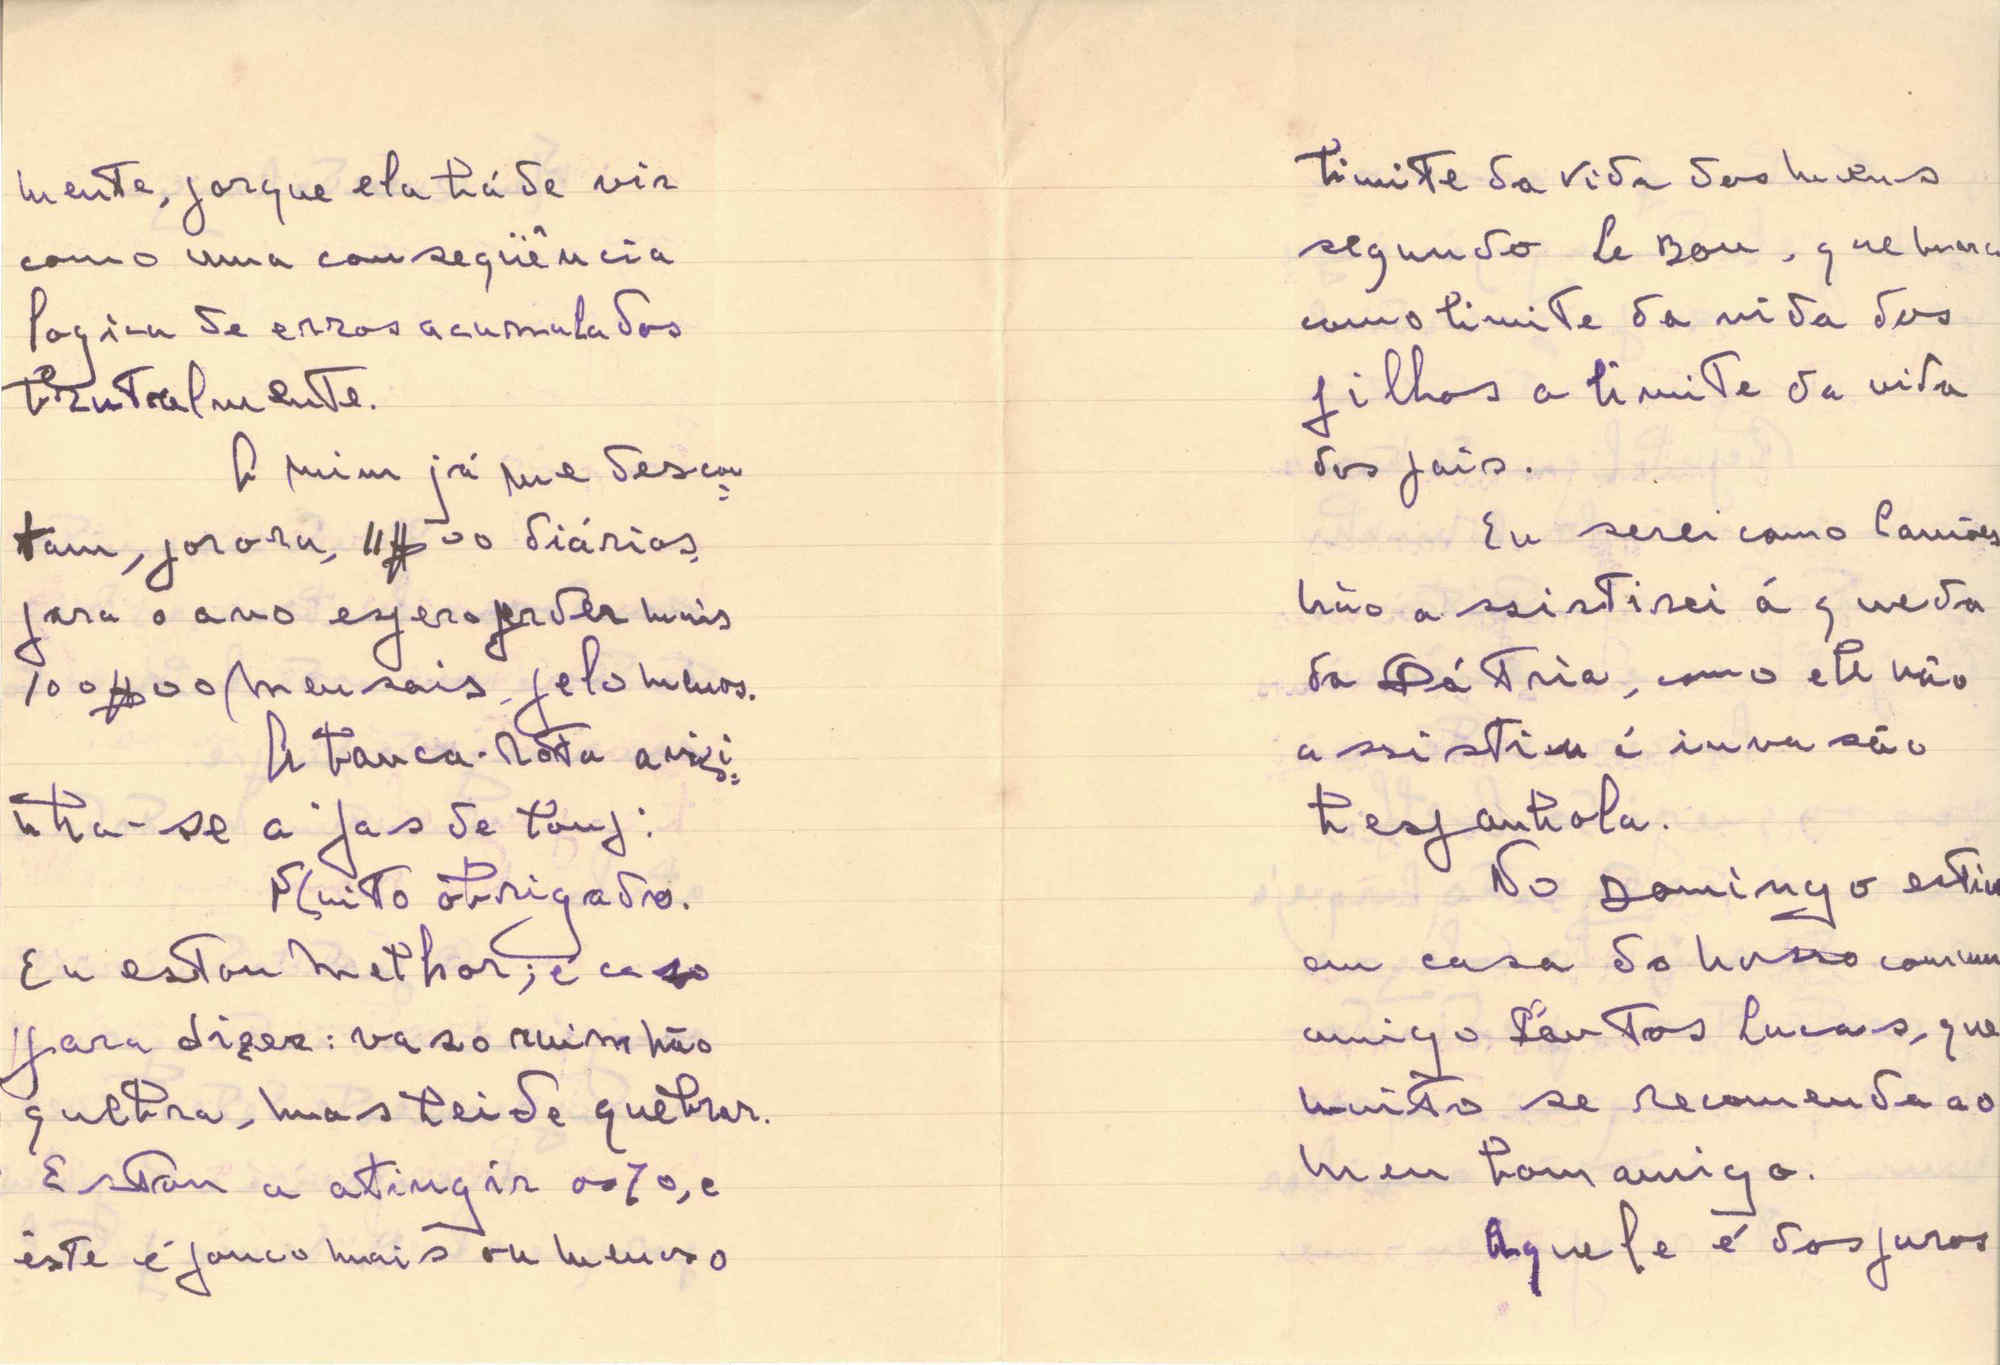 mente, porque ela há de vir
como uma conseqüência
logica de erros acumulados
brutalmente.
A mim já me descon=
tam, por ora, 11$00 diários,
para o ano espero perder mais
100$00 mensais, pelo menos.
A banca-rôta avizi=
nha-se a pas de loup:
Muito obrigado.
Eu estou melhor; é caso
para dizer: vaso ruim não
quebra, mas hei de quebrar.
Estou a atingir os 70, e
êste é pouco mais ou menos o
limite da vida dos meus
segundo Le Bon, que marca
como limite da vida dos
filhos o limite da vida
dos pais.
Eu serei como Camões
não assistirei á queda
da Pátria, como ele não
assistiu á invasão
hespanhola.
No Domingo estive
em casa do nosso comum
amigo Santos Lucas, que
muito se recomenda ao
meu bom amigo.
Aquele é dos puros